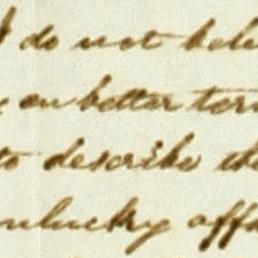 I do not bele
on better ter
to describe the
unlucky affa